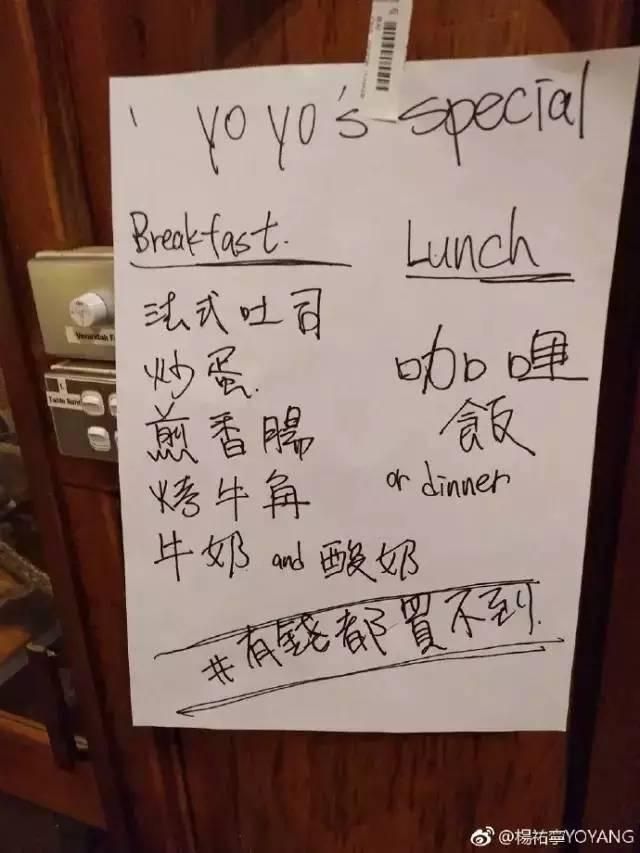 yo yo's special
Breakfast.
法式吐司
炒蛋
煎香腸
烤牛角
牛奶 and 酸奶
Lunch
咖哩
飯
or dinner
#有錢都買不到.
@楊祐寧YOYANG